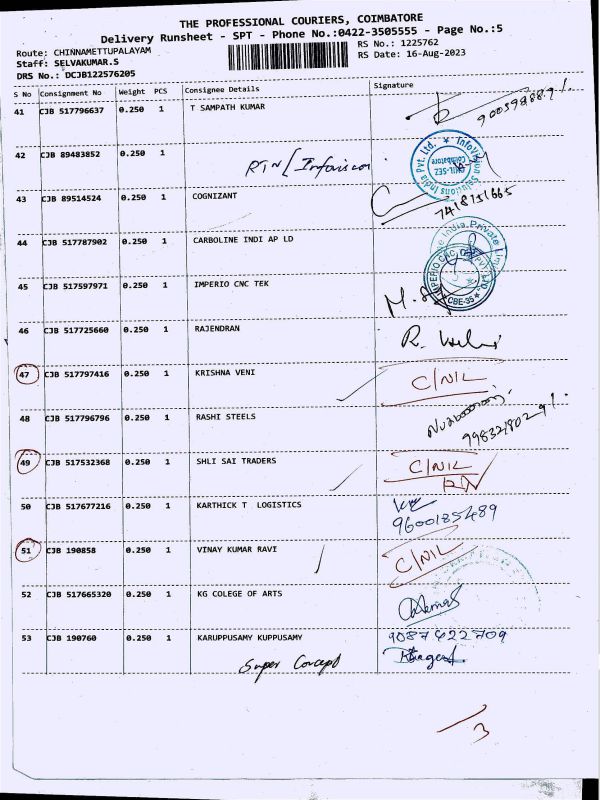 THE PROFESSIONAL COURIERS, COIMBATORE
Delivery Runsheet - SPT - Phone No.:0422-3505555 - Page No.:5
Route: CHINNAMETTUPALAYAM
RS No.: 1225762
Staff: SELVAKUMAR.S
RS Date: 16-Aug-2023
DRS No.: DCJB122576205
S No Consignment No Weight PCS Consignee Details Signature
41 CJB 517796637 0.250 1 T SAMPATH KUMAR
42 CJB 89483852 0.250 1 RTN Infovision
InfoVision
India Pvt. Ltd.
CHIL-SEZ
Coimbatore
43 CJB 89514524 0.250 1 COGNIZANT
7418151665
44 CJB 517787902 0.250 1 CARBOLINE INDI AP LD
India Private
45 CJB 517597971 0.250 1 IMPERIO CNC TEK
IMPERIO CNC
CBE-35
46 CJB 517725660 0.250 1 RAJENDRAN
47 CJB 517797416 0.250 1 KRISHNA VENI C/NIL
48 CJB 517796796 0.250 1 RASHI STEELS
9983218029
49 CJB 517532368 0.250 1 SHLI SAI TRADERS C/NIL
50 CJB 517677216 0.250 1 KARTHICK T LOGISTICS
9600185489
51 CJB 190858 0.250 1 VINAY KUMAR RAVI C/NIL
52 CJB 517665320 0.250 1 KG COLEGE OF ARTS
53 CJB 190760 0.250 1 KARUPPUSAMY KUPPUSAMY 9087422709
Super Concept
3